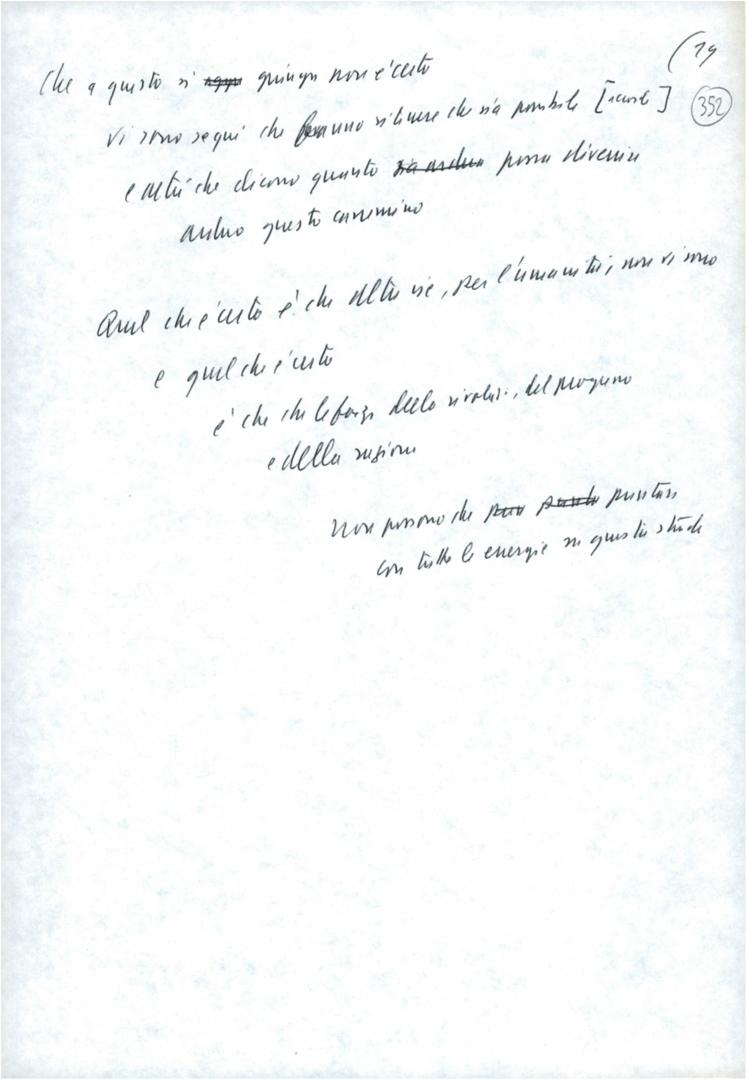 (19
352
Che a questo si giunga non è certo
vi sono segni che fanno ritenere che sia possibile
e altri che dicono quanto possa divenire
arduo questo cammino
Quel che è certo è che altre vie, per l'umanità, non vi sono
e quel che è certo
è che che le forze della rivoluz., del progresso
e della ragione
non possono che puntare
con tutte le energie su questa strada